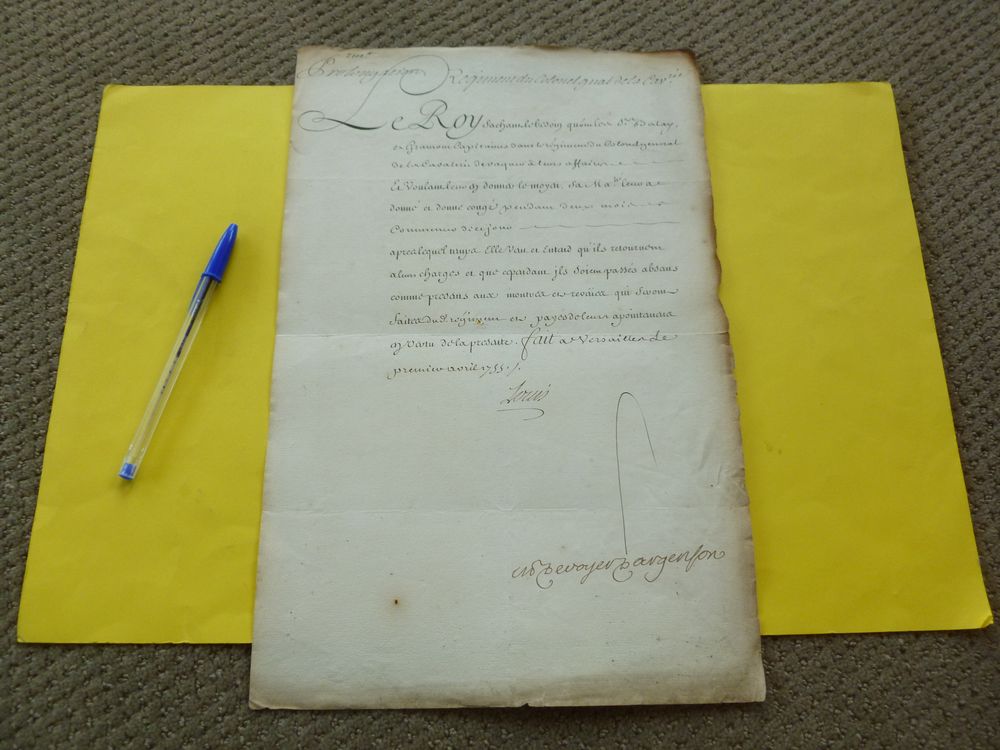 Regiment du Colonel gnal de la Cav.rie
Le Roy Sachant le besoin qu'ont les S.rs
et Gramont Capitaines dans le régiment du Colonel général
de la Cavalerie de vaquer à leurs affaires
Et Voulant leur en donner le moyen, Sa Ma.té leur a
donné et donne congé pendant deux mois
Commencer de ce jour
apres lequel temps Elle Veut et Entend qu'ils retournent
a leurs charges et que cependant ils Soient passés absens
comme presens aux montres et reveües qui Seront
faites du d. régiment et payés de leurs apointemens
en Vertu de la presente. fait a Versailles Le
premier avril 1755./.
Louis
M P De voyer D'argenson